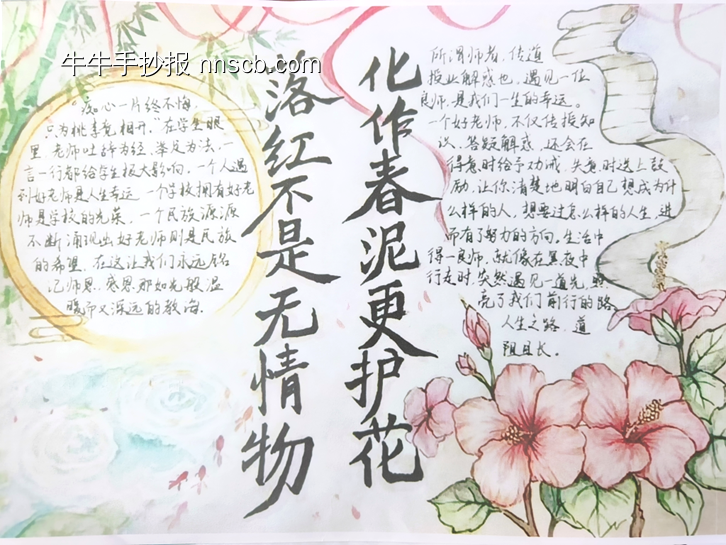 牛牛手抄报 nnscb.com
痴心一片终不悔，
只为桃李竞相开，在学生眼
里，老师吐辞为经、举足为法，一
言一行都给学生极大影响。一个人遇
到好老师是人生幸运，一个学校拥有好老
师是学校的光荣，一个民族源源
不断涌现出好老师则是民族
的希望，在这让我们永远铭
记师恩，感恩那如光般温
暖而又深远的教诲。
落红不是无情物
化作春泥更护花
所谓师者，传道
授业解惑也，遇见一位
良师，是我们一生的幸运。
一个好老师，不仅传授知
识、答疑解惑，还会在
得意时给予劝诫，失意时送上鼓
励，让你清楚地明白自己想成为什
么样的人，想要过怎么样的人生，进
而有了努力的方向。生活中
得一良师，就像在黑夜中
行走时，突然遇见一道光，照
亮了我们前行的路
人生之路，道
阻且长。